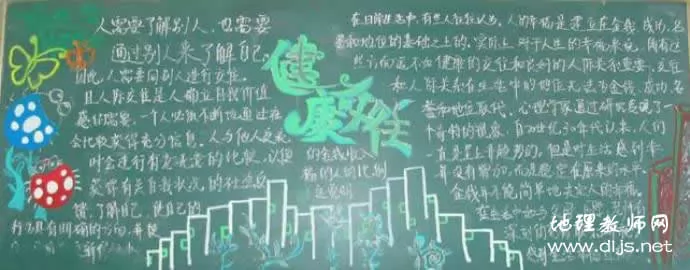 人需要了解别人,也需要
通过别人来了解自己,
因此,人需要同别人进行交往。
且人际交往是人确立自我价值
感的需要,一个人必须不断地通过社
会比较获得充分信息。
叶会进行有意无意的比较,以便
获得有关自我状况的社会反
馈,了解自己,使自己的
行为具有明确的方向,并使
健康交往
的金钱收入
福的人的比例
在日常生活中,有些人往往认为,人的幸福是建立在金钱、成功、名
誉和地位的基础之上的。实际上,对于人生的幸福来说,所有这
些方面远不如健康的交往和良好的人际关系重要。交往
和人际关系在生活中的地位无法为金钱、成功、名
誉和地位取代。心理学家通过研究发现了一
个奇特的现象,自20世纪30年代以来,人们
一直呈上升趋势的,但是对生活感到幸
并没有增加,而是稳定在原来的水平。
金钱并不能简单地决定人的幸福。
在生活中
深刻的
地理教师网
www.dljs.net